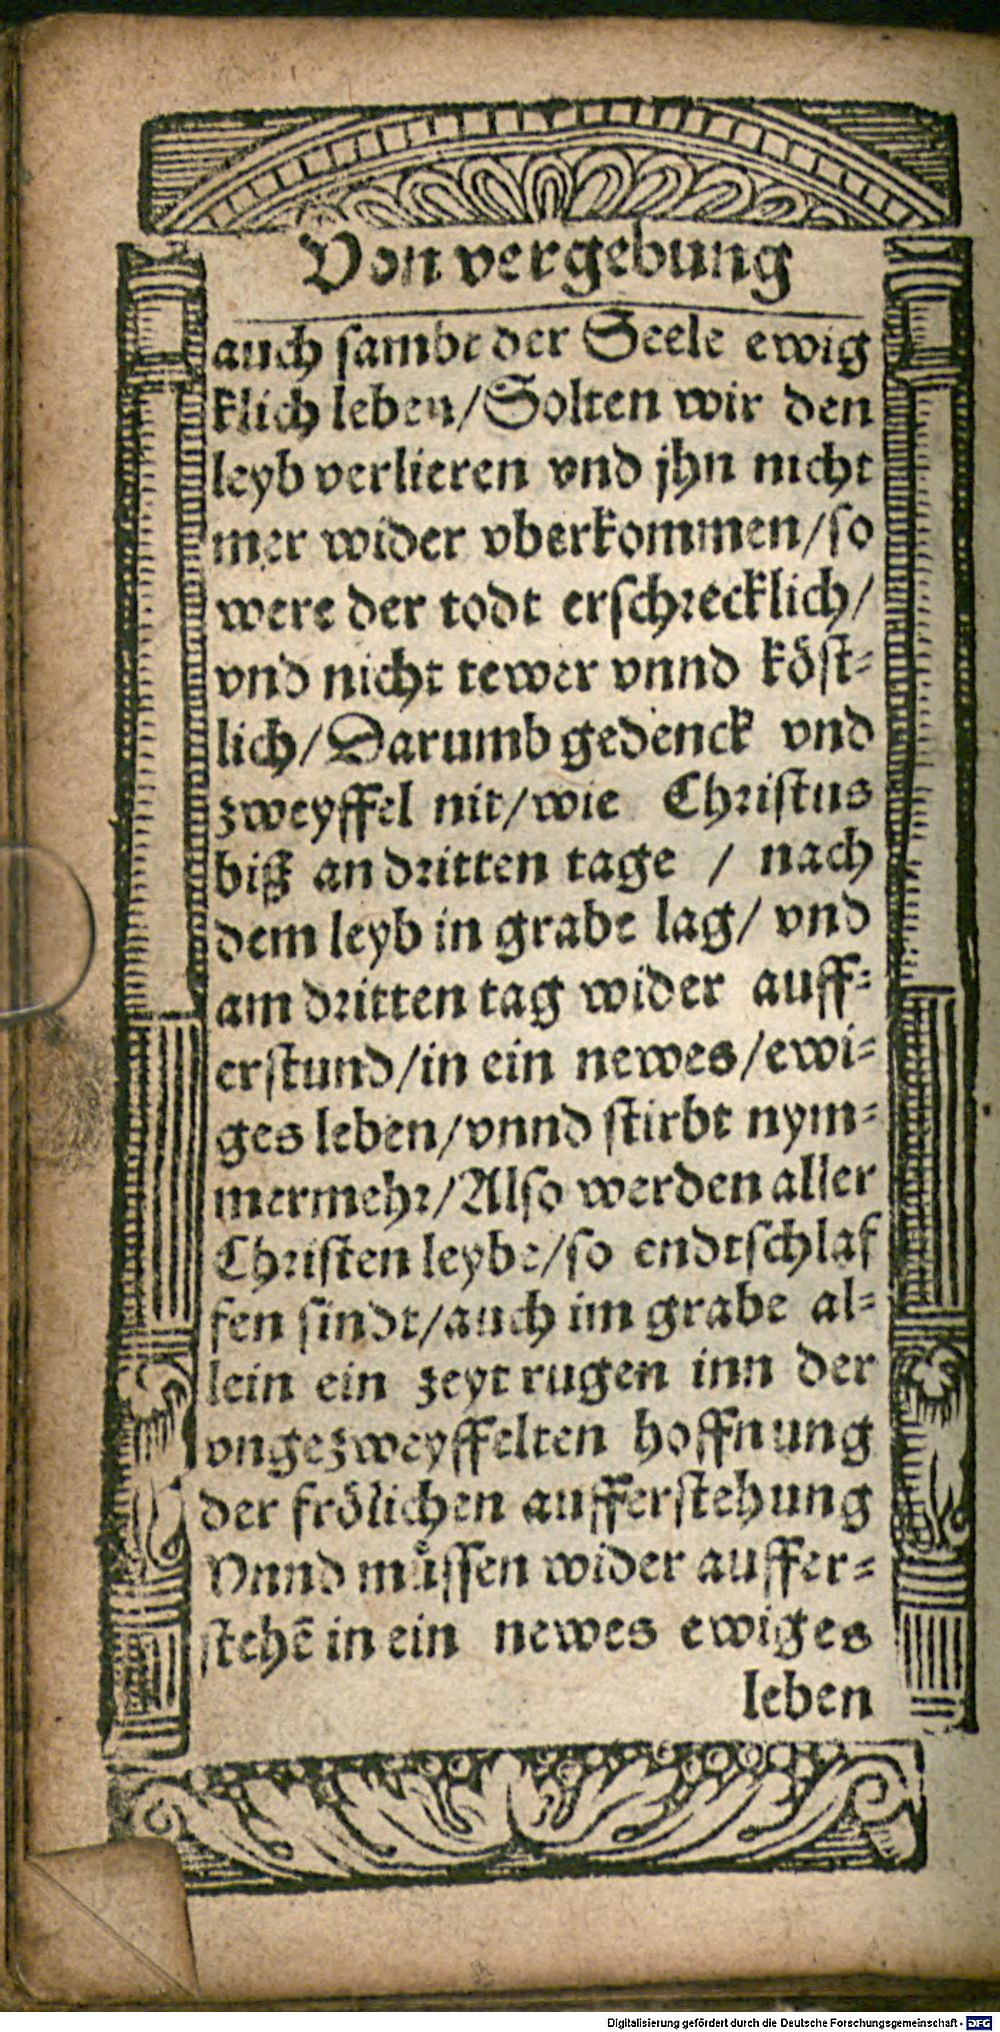 Von vergebung
auch sambt der Seele ewig
klich leben/Solten wir den
leyb verlieren vnd jhn nicht
mer wider vberkommen/so
were der todt erschrecklich/
vnd nicht tewer vnnd köst⸗
lich/Darumb gedenck vnd
zweyffel nit/wie Christus
biß an dritten tage / nach
dem leyb in grabe lag/ vnd
am dritten tag wider auff⸗
erstund/in ein newes/ewi⸗
ges leben/vnnd stirbt nym⸗
mermehr/Also werden aller
Christen leybe/so endtschlaf
fen sindt/auch im grabe al⸗
lein ein zeyt rugen inn der
vngezweyffelten hoffnung
der frölichen aufferstehung
Vnnd müssen wider auffer⸗
stehē in ein newes ewiges
leben
Digitalisierung gefördert durch die Deutsche Forschungsgemeinschaft - DFG